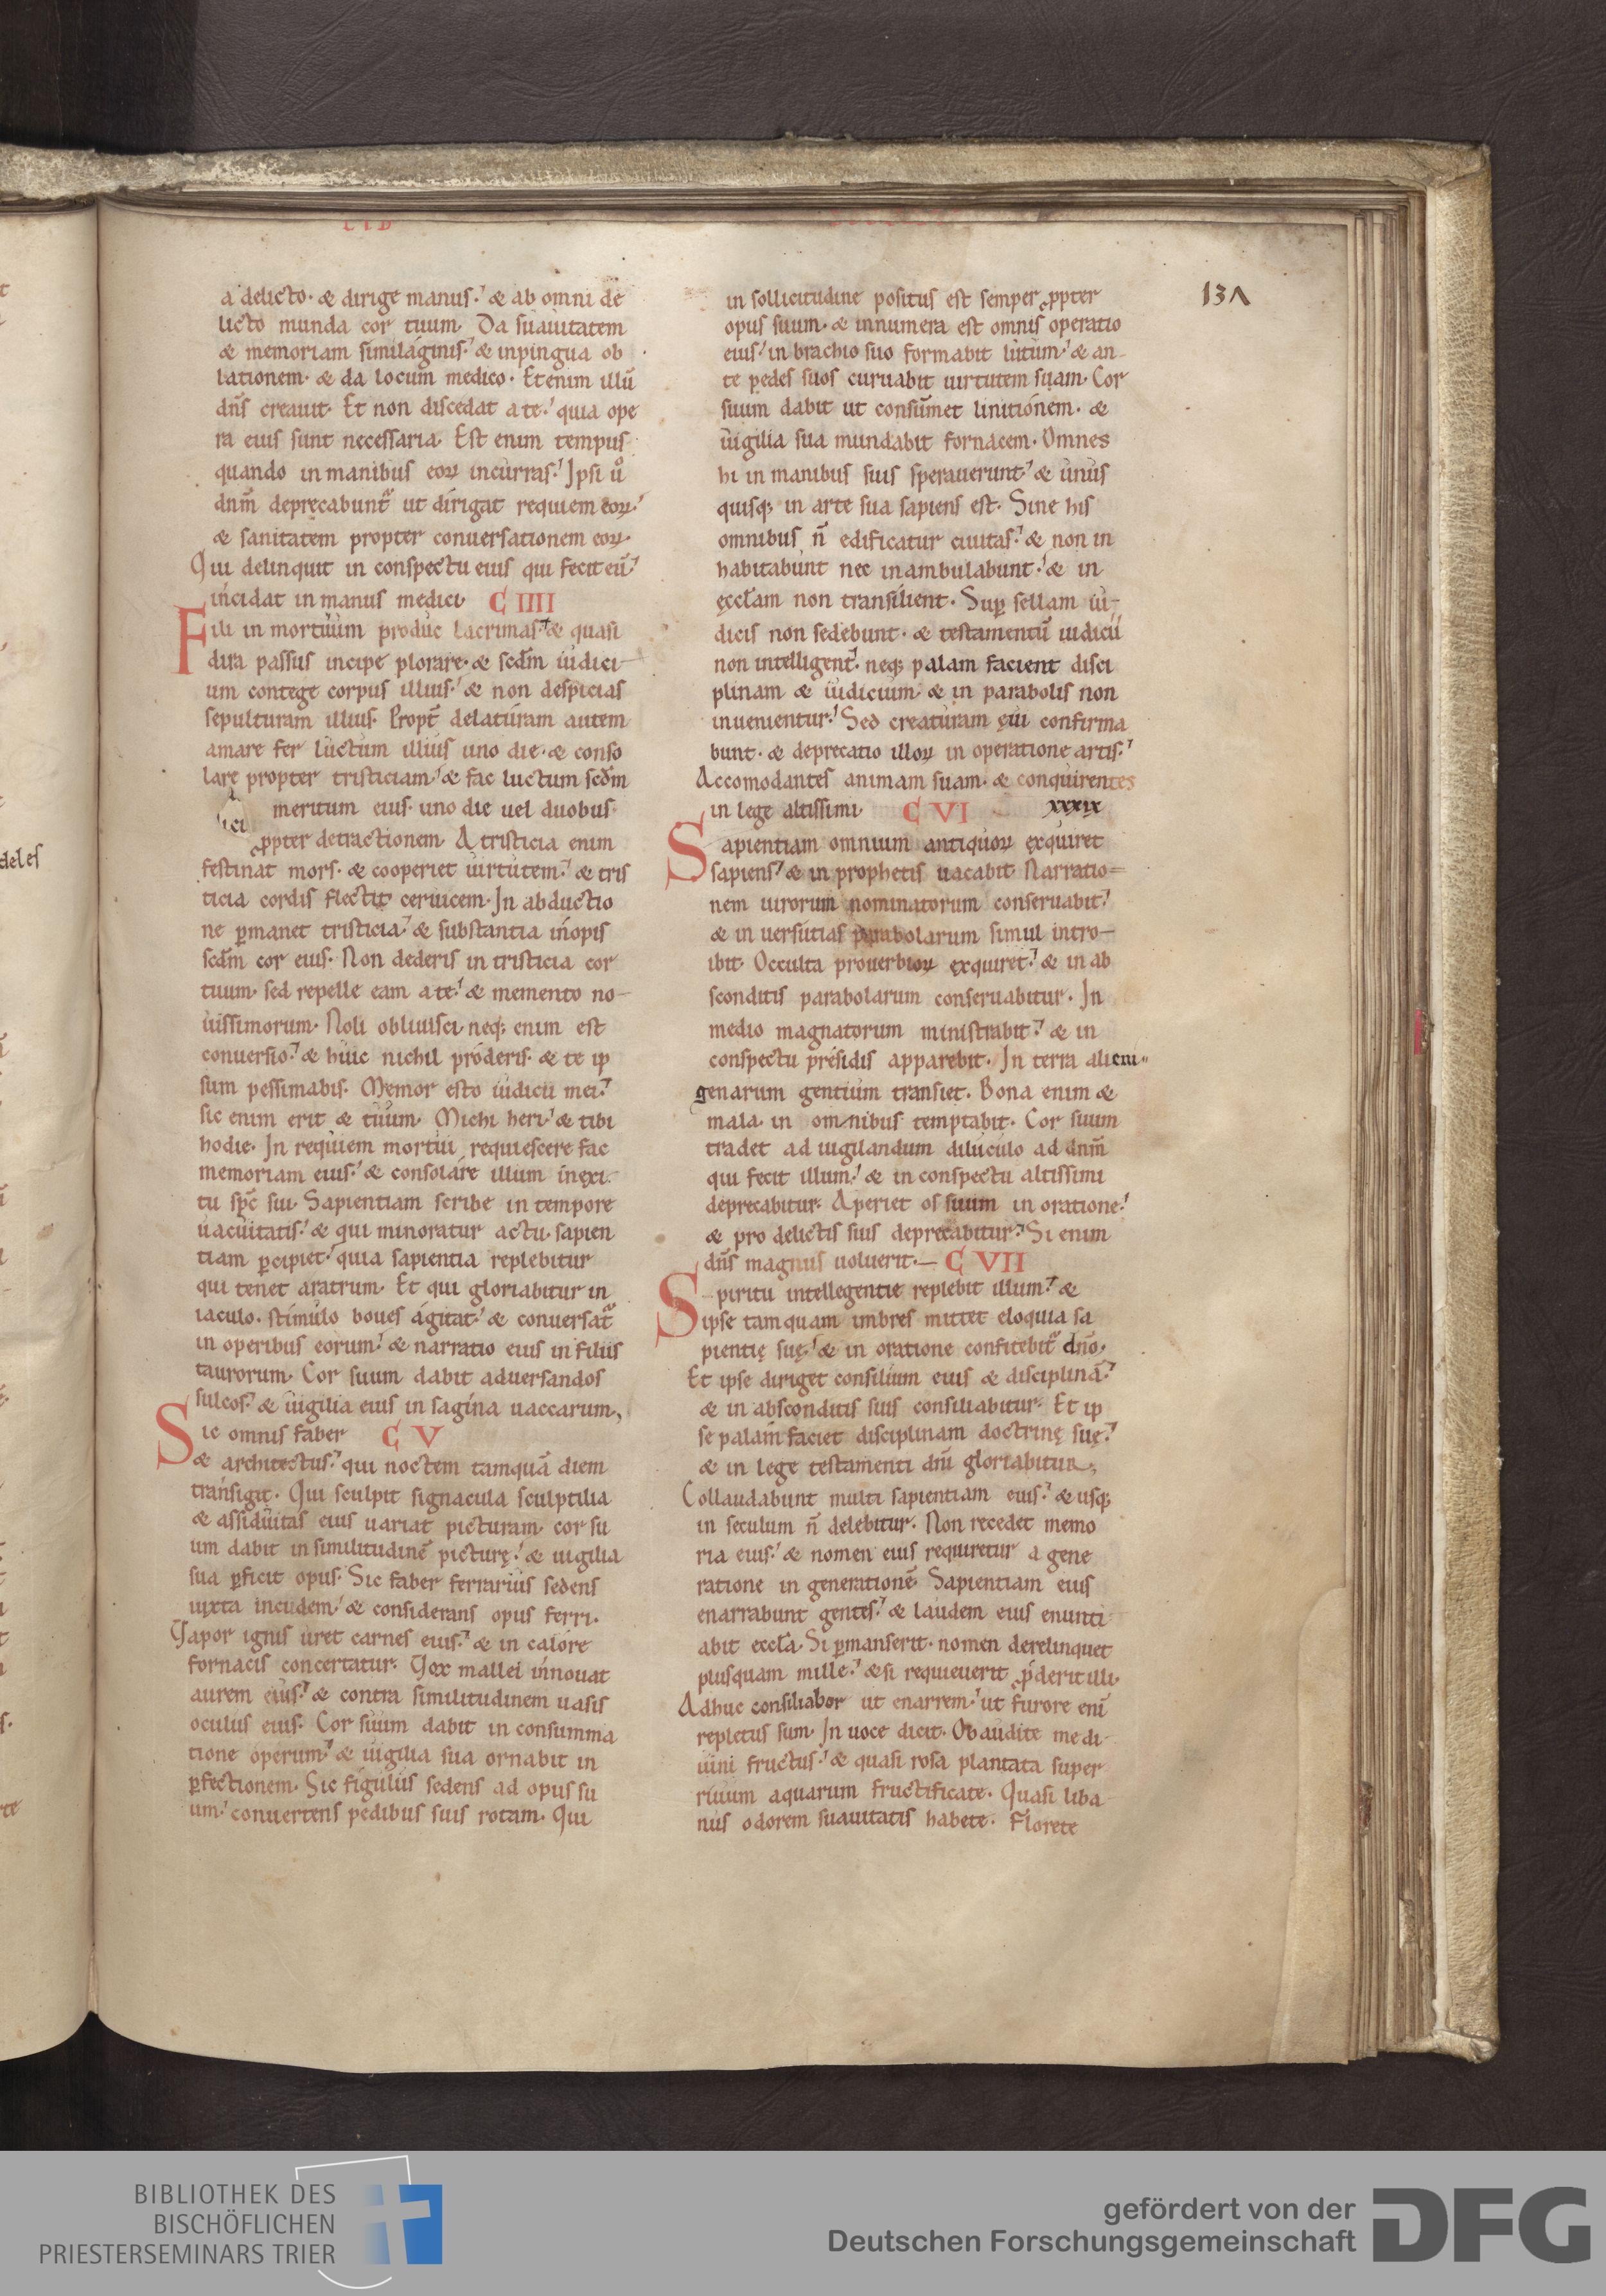 LIB
137
a delicto· & dirige manus.' & ab omni de
licto munda cor tuum. Da suauitatem
& memoriam similaginis.' & inpingua ob
lationem· & da locum medico· Etenim illū
dn̄s creauit· Et non discedat a te.' quia ope
ra eius sunt necessaria. Est enim tempus
quando in manibus eoꝝ incurras.' Ipsi ů
dnm̄ deprecabunt᷑ ut dirigat requiem eoꝝ.'
& sanitatem propter conuersationem eoꝝ·
Qui delinquit in conspectu eius qui fecit eū.'
incidat in manus medici· C IIII
Fili in mortuum produc lacrimas.' & quasi
dira passus incipe plorare· & scd̄m iudici–
um contege corpus illius.' & non despicias
sepulturam illius. Propt̄ delaturam autem
amare fer luctum illius uno die· & conso
lare propter tristiciam.' & fac luctum scd̄m
meritum eius· uno die uel duobus·
ꝓpter detractionem. A tristicia enim
festinat mors. & cooperiet uirtutem.' & tris
ticia cordis flectit ceruicem. In abductio
ne ꝑmanet tristicia.' & substantia inopis
scd̄m cor eius. Non dederis in tristicia cor
tuum· sed repelle eam a te.' & memento no–
uissimorum. Noli obliuisci· neq; enim est
conuersio.' & huic nichil proderis· & te ip
sum pessimabis. Memor esto iudicii mei.'
sic enim erit & tuum. Michi heri.' & tibi
hodie. In requiem mortui requiescere fac
memoriam eius.' & consolare illum in exi
tu sp̄c sui. Sapientiam scribe in tempore
uacuitatis.' & qui minoratur actu· sapien
tiam ꝑcipiet.' quia sapientia replebitur
qui tenet aratrum. Et qui gloriabitur in
iaculo. stimulo boues agitat.' & conuersat᷑
in operibus eorum.' & narratio eius in filiis
taurorum. Cor suum dabit ad uersandos
sulcos.' & uigilia eius in sagina uaccarum.
Sic omnis faber C V
& architectus.' qui noctem tamquā diem
transigit. Qui sculpit signacula sculptilia
& assiduitas eius uariat picturam· cor su
um dabit in similitudinē picturę.' & uigilia
sua ꝑficit opus. Sic faber ferrarius sedens
iuxta incudem.' & considerans opus ferri.
Vapor ignis uret carnes eius.' & in calore
fornacis concertatur. Vox mallei innouat
aurem eius.' & contra similitudinem uasis
oculus eius. Cor suum dabit in consumma
tione operum.' & uigilia sua ornabit in
ꝑfectionem. Sic figulus sedens ad opus su
um.' conuertens pedibus suis rotam. Qui
in sollicitudine positus est semper ꝓpter
opus suum· & innumera est omnis operatio
eius.' in brachio suo formabit lutum.' & an–
te pedes suos curuabit uirtutem suam· Cor
suum dabit ut consūmet linitionem· &
uigilia sua mundabit fornacem. Omnes
hi in manibus suis sperauerunt.' & unus
quisq; in arte sua sapiens est. Sine his
omnibus n̄ edificatur ciuitas.' & non in
habitabunt nec inambulabunt.' & in
ęccl̄am non transilient. Suꝑ sellam iu–
dicis non sedebunt· & testamentū iudicii
non intelligent.' neq; palam facient disci
plinam & iudicium· & in parabolis non
inuenientur.' Sed creaturam ęui confirma
bunt· & deprecatio illoꝝ in operatione artis.'
Accomodantes animam suam· & conquirentes
in lege altissimi· C VI xxxix
Sapientiam omnium antiquoꝝ exquiret
sapiens.' & in prophetis uacabit· Narratio=
nem uirorum nominatorum conseruabit.'
& in uersutias parabolarum simul intro–
ibit· Occulta prouerbioꝝ exquiret.' & in ab
sconditis parabolarum conseruabitur. In
medio magnatorum ministrabit.' & in
conspectu presidis apparebit. In terra alieni=
genarum gentium transiet. Bona enim &
mala· in omnibus temptabit. Cor suum
tradet ad uigilandum diluculo ad dnm̄
qui fecit illum.' & in conspectu altissimi
deprecabitur. Aperiet os suum in oratione.'
& pro delictis suis deprecabitur.' Si enim
dn̄s magnus uoluerit.— C VII
Spiritu intellegentie replebit illum.' &
ipse tamquam imbres mittet eloquia sa
pientię suę.' & in oratione confitebit᷑ dn̄o.
Et ipse diriget consilium eius & disciplinā.'
& in absconditis suis consiliabitur. Et ip
se palam faciet disciplinam doctrinę suę.'
& in lege testamenti dn̄i gloriabitur.
Collaudabunt multi sapientiam eius.' & usq;
in seculum n̄ delebitur. Non recedet memo
ria eius.' & nomen eius requiretur a gene
ratione in generationē· Sapientiam eius
enarrabunt gentes.' & laudem eius enunti
abit eccl̄a. Si ꝑmanserit· nomen derelinquet
plusquam mille.' & si requieuerit ꝓderit illi.
Adhuc consiliabor ut enarrem.' ut furore enī
repletus sum. In uoce dicit. Obaudite me di–
uini fructus.' & quasi rosa plantata super
riuum aquarum fructificate. Quasi liba
nus odorem suauitatis habete. Florete
deles
BIBLIOTHEK DES
BISCHÖFLICHEN
PRIESTERSEMINARS TRIER
gefördert von der
Deutschen Forschungsgemeinschaft
DFG